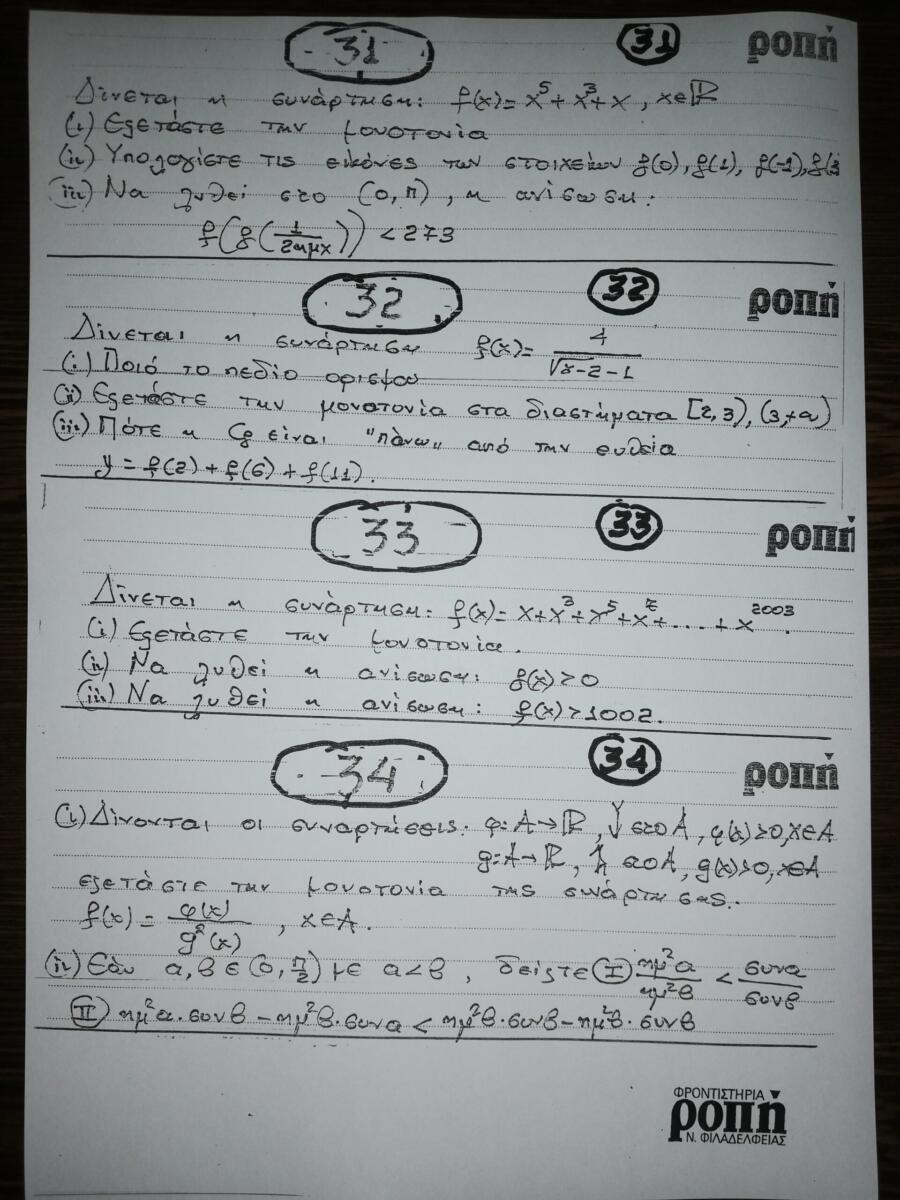 31 31 ροπή
Δίνεται η συνάρτηση: f(x) = x⁵ + x³ + x , x∈ℝ
(i) Εξετάστε την μονοτονία
(ii) Υπολογίστε τις εικόνες των στοιχείων f(0), f(1), f(-1), f(3
(iii) Να λυθεί στο (0,π) , η ανίσωση:
f(f(1/2ημx)) < 273
32 32 ροπή
Δίνεται η συνάρτηση f(x) = 4/(√x-2 - 1)
(i) Ποιό το πεδίο ορισμού
(ii) Εξετάστε την μονοτονία στα διαστήματα [2,3), (3,+∞)
(iii) Πότε η Cf είναι "πάνω" από την ευθεία
y = f(2) + f(6) + f(11).
33 33 ροπή
Δίνεται η συνάρτηση: f(x) = x + x³ + x⁵ + x⁷ + .... + x²⁰⁰³.
(i) Εξετάστε την μονοτονία.
(ii) Να λυθεί η ανίσωση: f(x) > 0
(iii) Να λυθεί η ανίσωση: f(x) > 1002.
34 34 ροπή
(i) Δίνονται οι συναρτήσεις: φ: A→ℝ , ↓ στο A , φ(x) > 0, x∈A
g: A→ℝ , ↑ στο A, g(x) > 0, x∈A
εξετάστε την μονοτονία της συνάρτησης.
f(x) = φ(x)/g²(x) , x∈A.
(ii) Εάν α,β ∈ (0, π/2) με α<β , δείξτε (I) ημ²α/ημ²β < συνα/συνβ
(II) ημ²α·συνβ - ημ²β·συνα < ημ²β·συνβ - ημ²β·συνβ
ΦΡΟΝΤΙΣΤΗΡΙΑ
ροπή
Ν. ΦΙΛΑΔΕΛΦΕΙΑΣ